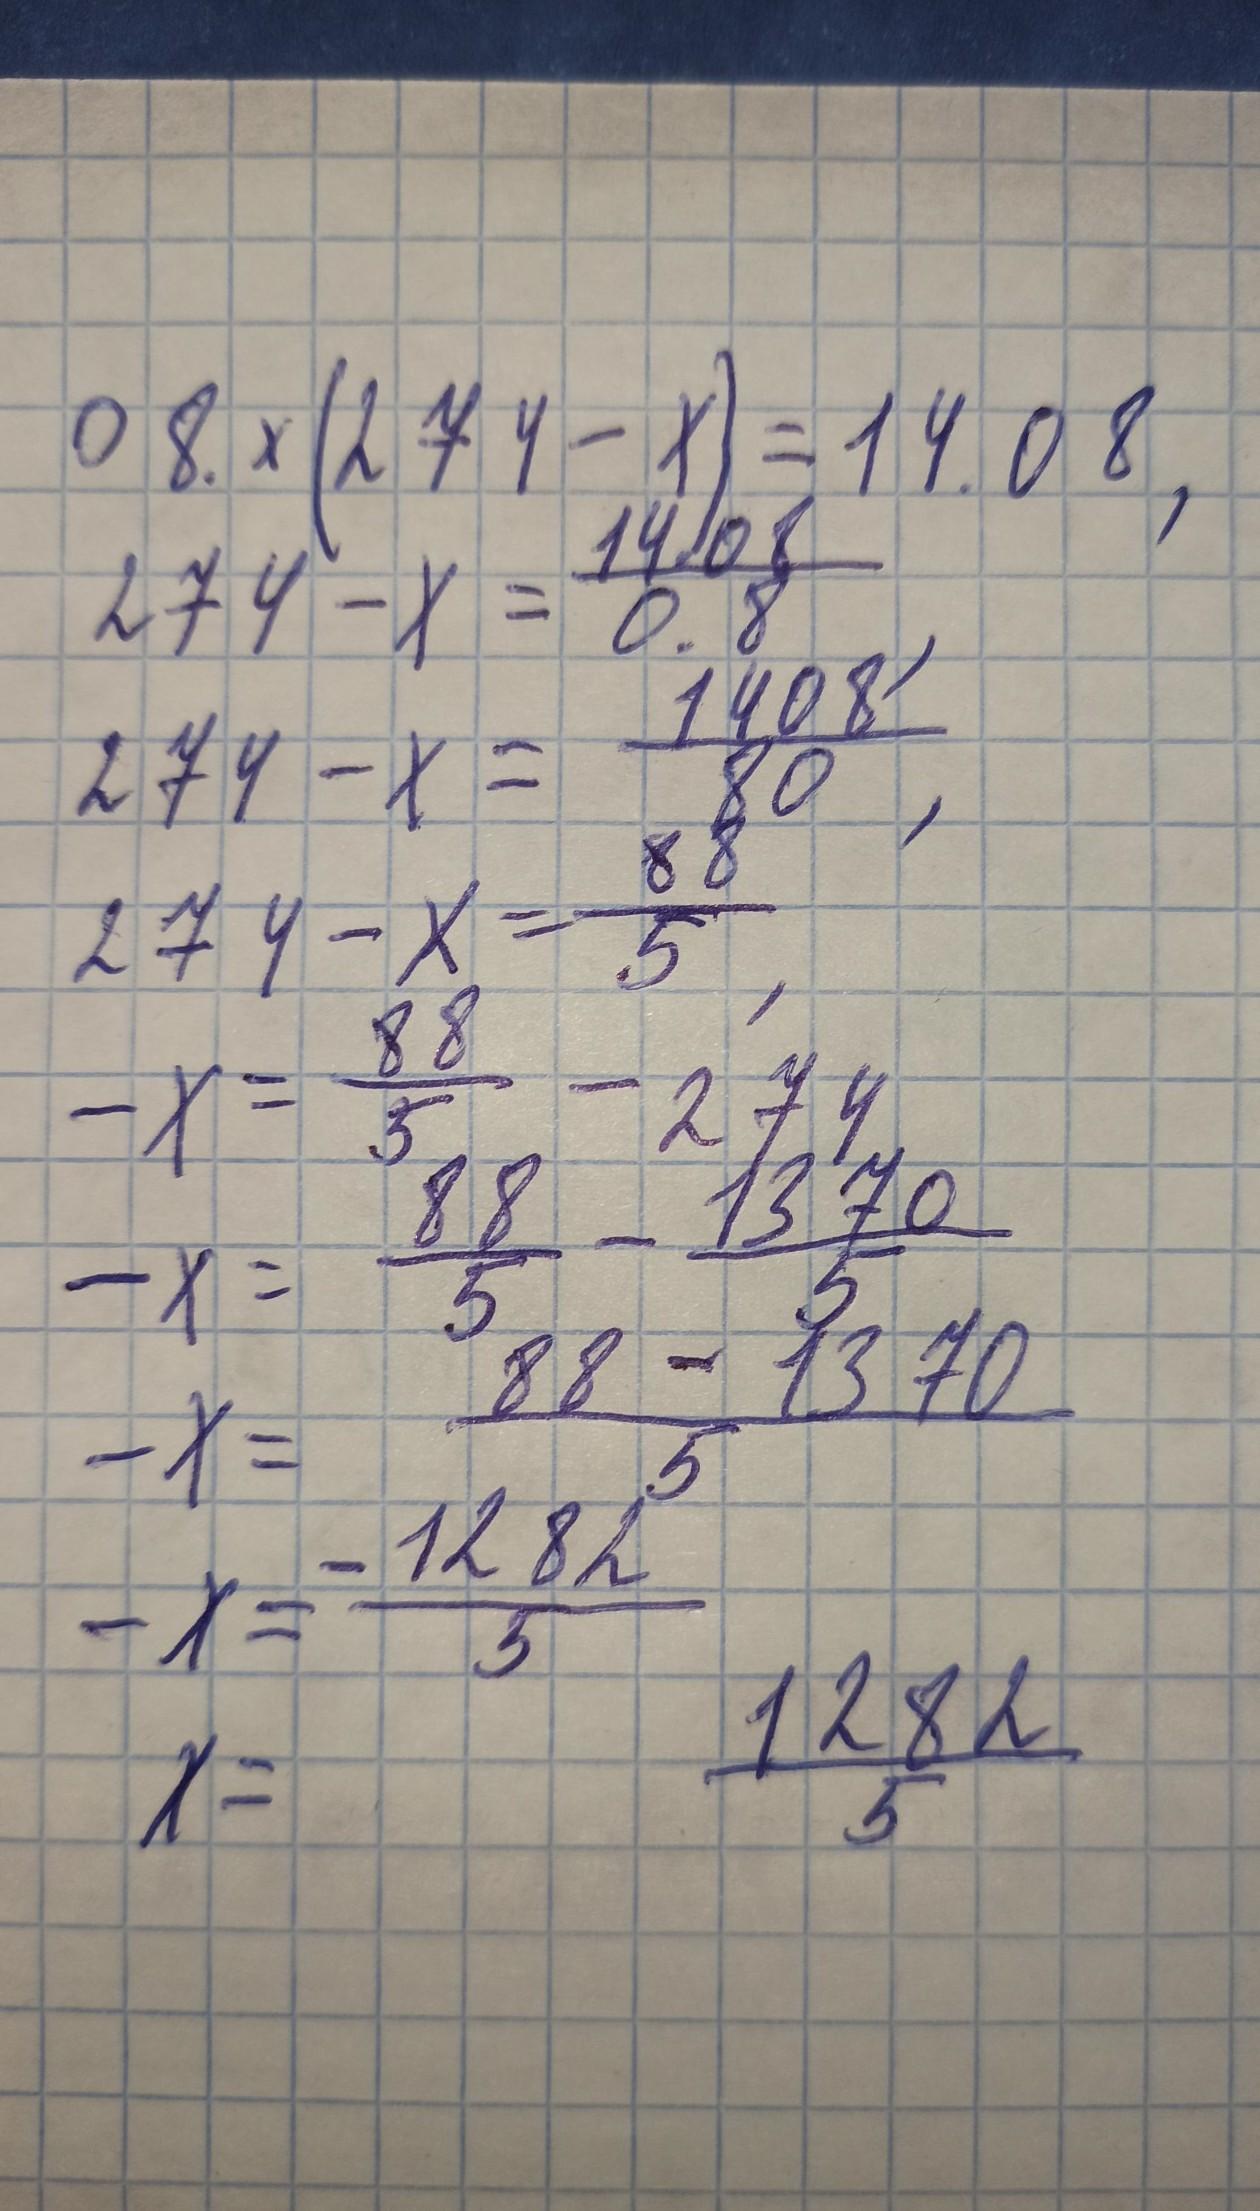 08. x (274 - x) = 14.08,
274 - x = 14.08/0.8,
274 - x = 1408/80,
274 - x = 88/5,
-x = 88/5 - 274
-x = 88/5 - 1370/5
-x = 88 - 1370/5
-x = -1282/5
x = 1282/5